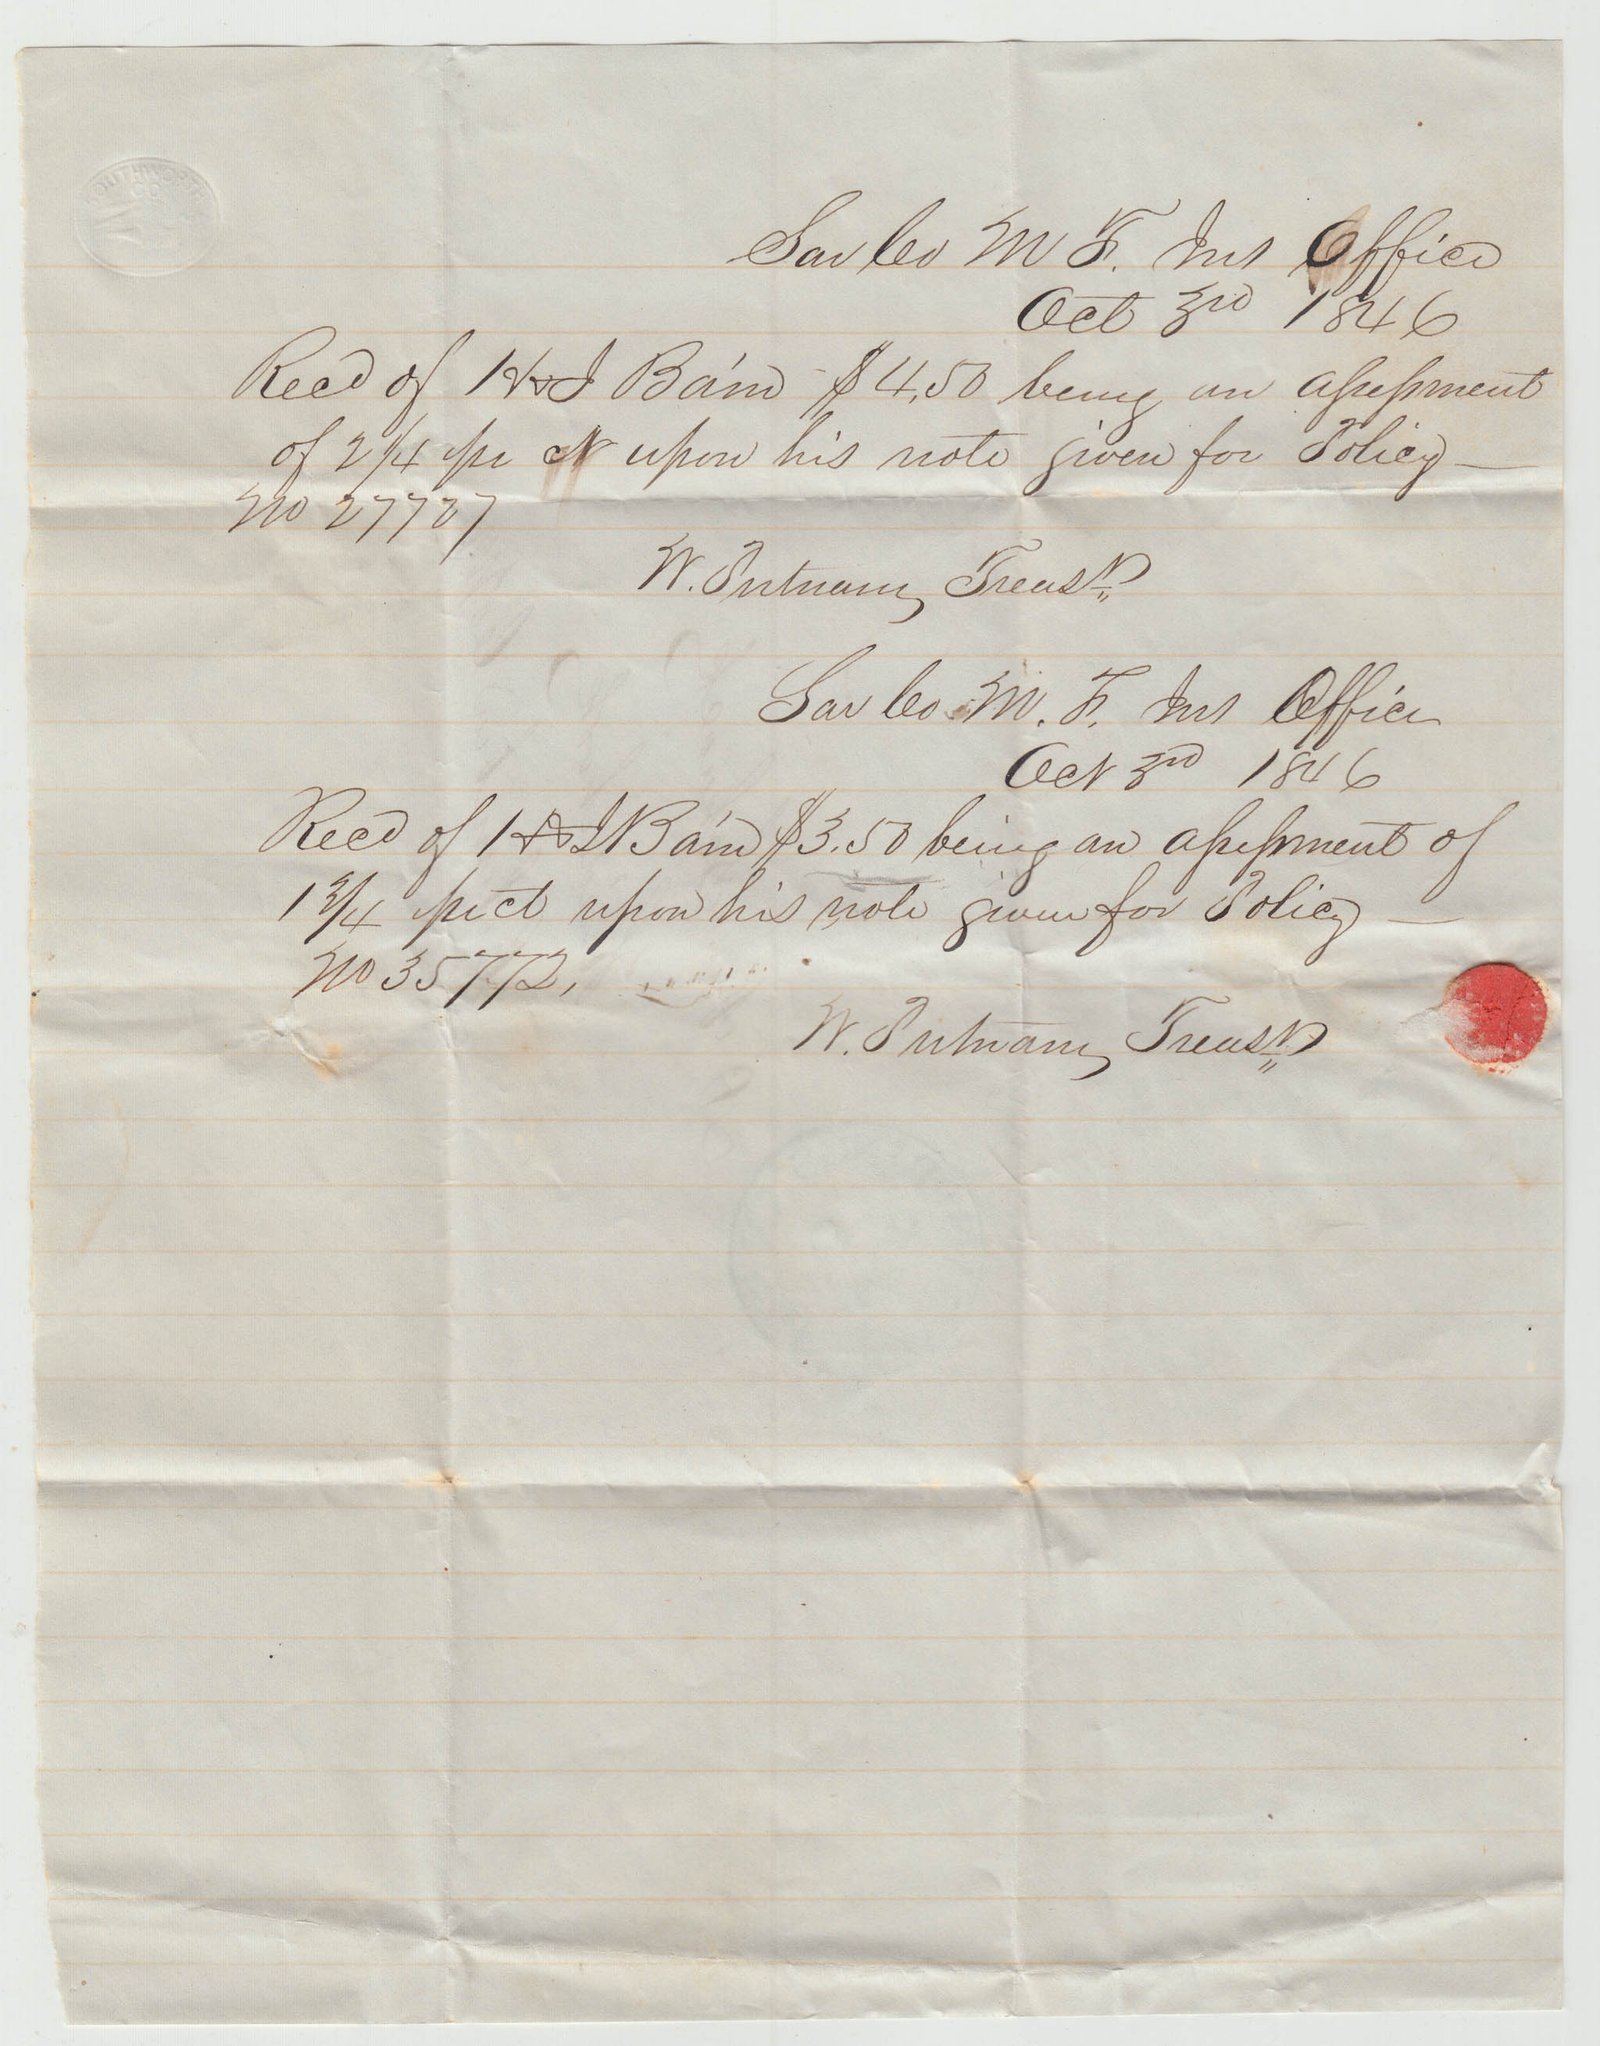 SOUTHWORTH
CO
Sar Co M F. Ins Office
Oct 3rd 1846
Recd of H & J Bain $4,50 being an assessment
of 2 1/4 pr ct upon his note given for Policy —
No 27727
W. Putnam Treasr.
Sar Co M. F. Ins Office
Oct 3rd 1846
Recd of H & J Bain $3.50 being an assessment of
1 3/4 pr ct upon his note given for Policy —
No 35772,
W. Putnam Treasr.